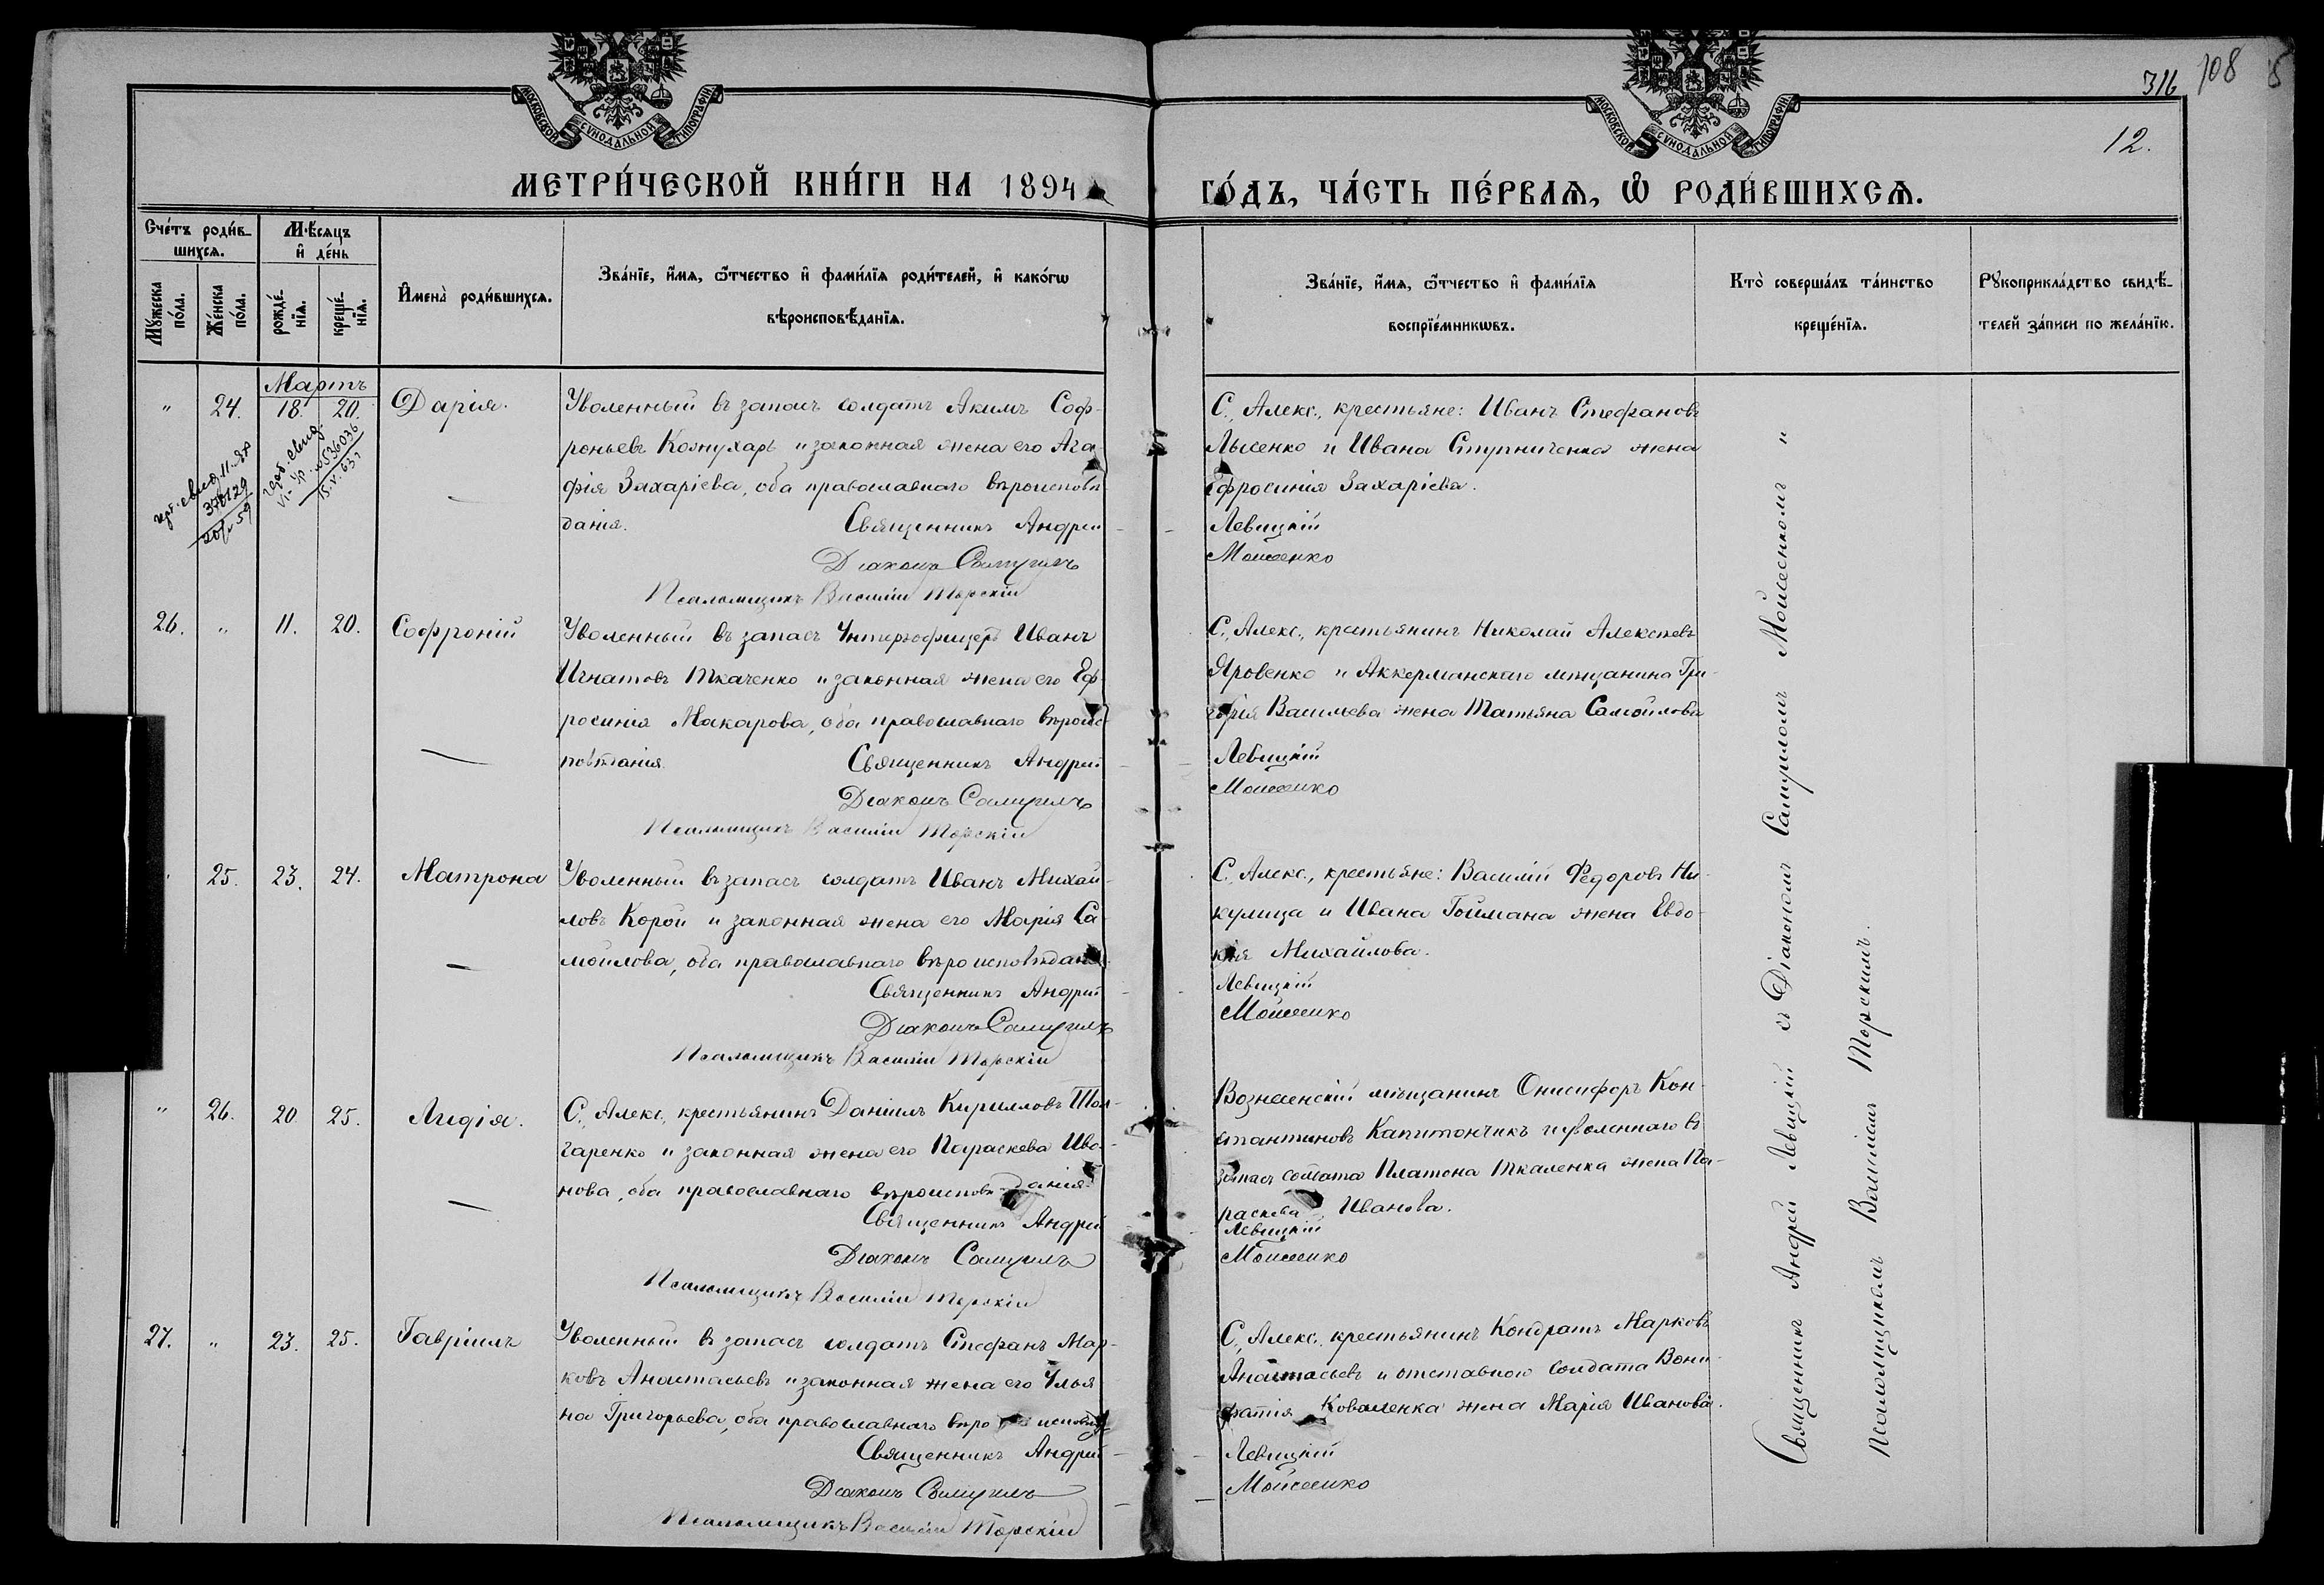 316 108
12.
МОСКОВСКОЙ СѴНОДАЛЬНОЙ ТИПОГРАФІИ
МОСКОВСКОЙ СѴНОДАЛЬНОЙ ТИПОГРАФІИ
МЕТРИ́ЧЕСКОЙ КНИ́ГИ НА 1894
ГО́ДЪ, ЧА́СТЬ ПЕ́РВАѦ, Ѡ҆ РОДИ́ВШИХСѦ.
Сче́тъ роди́в-
шихсѧ.
Мѣ́сѧцъ
и҆ де́нь
Мꙋ́жеска
по́ла.
Же́нска
по́ла.
рожде́-
нїѧ.
креще́-
нїѧ.
И҆мена̀ роди́вшихсѧ.
Зва́нїе, и҆́мѧ, ѻ҆́тчество и҆ фами́лїѧ роди́телей, и҆ како́гѡ
вѣроисповѣ́данїѧ.
Зва́нїе, и҆́мѧ, ѻ҆́тчество и҆ фами́лїѧ
воспрїе́мникѡвъ.
Кто̀ соверша́лъ та́инство
креще́нїѧ.
Рꙋкоприкла́дство свидѣ́-
телей за́писи по жела́нїю.
Мартъ
" 24. 18. 20. Дарія.
Уволенный въ запасъ солдатъ Акимъ Соф-
роньевъ Кожухарь и законная жена его Ага-
фія Захаріева, оба православнаго вѣроисповѣ-
данія. Священникъ Андрей
Діаконъ Самуилъ
Псаломщикъ Василій Торскій
С. Алекс., крестьяне: Иванъ Стефановъ
Лысенко и Ивана Ступниченка жена
Ефросинія Захаріева.
Левицкій
Мойсеенко
26. " 11. 20. Софроній
Уволенный въ запасъ Унтеръ-офицеръ Иванъ
Игнатовъ Ткаченко и законная жена его Еф-
росинія Макарова, оба православнаго вѣроис-
повѣданія. Священникъ Андрей
Діаконъ Самуилъ
Псаломщикъ Василій Торскій
С. Алекс., крестьянинъ Николай Алексѣевъ
Яровенко и Аккерманскаго мѣщанина Гри-
горія Васильева жена Татьяна Самойлова
Левицкій
Мойсеенко
25. 23. 24. Матрона
Уволенный въ запасъ солдатъ Иванъ Михай-
ловъ Корой и законная жена его Марія Са-
мойлова, оба православнаго вѣроисповѣданія.
Священникъ Андрей
Діаконъ Самуилъ
Псаломщикъ Василій Торскій
С. Алекс., крестьяне: Василій Федоровъ Ни-
кулица и Ивана Гоймана жена Евдо-
кія Михайлова.
Левицкій
Мойсеенко
" 26. 20. 25. Лидія.
С. Алекс., крестьянинъ Даніилъ Кирилловъ
и законная жена его Параскева Ива-
нова, оба православнаго вѣроисповѣданія.
Священникъ Андрей
Діаконъ Самуилъ
Псаломщикъ Василій Торскій
Вознесенскій мѣщанинъ Онисифоръ Кон-
стантиновъ Капитончикъ и уволеннаго въ
запасъ солдата Платона Ткаленка жена Па-
раскева Иванова.
Левицкій
Мойсеенко
27. " 23. 25. Гавріилъ
Уволенный въ запасъ солдатъ Стефанъ Мар-
ковъ Анастасьевъ и законная жена его Улья-
на Григорьева, оба православнаго вѣроисповѣд.
Священникъ Андрей
Діаконъ Самуилъ
Псаломщикъ Василій Торскій
С. Алекс., крестьянинъ Кондратъ Марковъ
Анастасьевъ и отставного солдата Вони-
фатія Коваленка жена Марія Иванова.
Левицкій
Мойсеенко
Священникъ Андрей Левицкій съ Діакономъ Самуиломъ Мойсеенкомъ и
Псаломщикомъ Василіемъ Торскимъ.